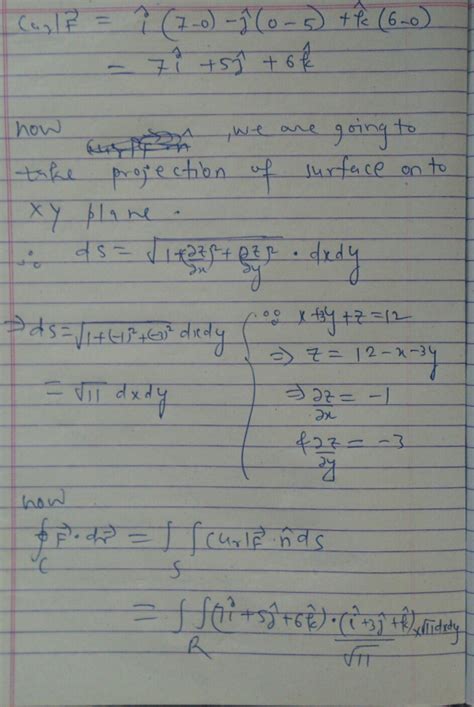 Curl F⃗ = î (7-0) - ĵ (0-5) + k̂ (6-0)
= 7î + 5ĵ + 6k̂
now , we are going to
take projection of surface on to
xy plane.
∴ ds = √(1+(∂z/∂x)²+(∂z/∂y)²) · dxdy
⇒ ds = √(1+(-1)²+(-3)²) dxdy
= √11 dxdy
∵ x+3y+z=12
⇒ z = 12-x-3y
⇒ ∂z/∂x = -1
& ∂z/∂y = -3
now
∮_C F⃗·dr⃗ = ∫∫_S Curl F⃗ · n̂ ds
= ∫∫_R (7î+5ĵ+6k̂) · (î+3ĵ+k̂)/√11 × √11 dxdy